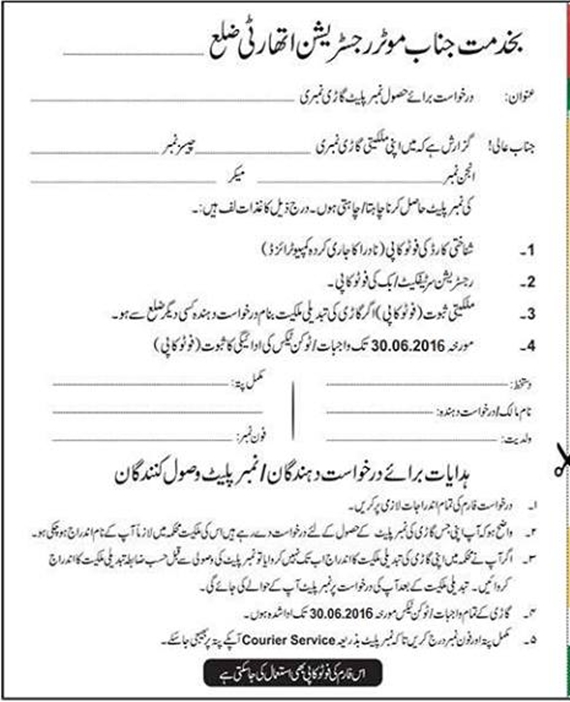 بخدمت جناب موٹر رجسٹریشن اتھارٹی ضلع
عنوان: درخواست برائے حصول نمبر پلیٹ گاڑی نمبری
جناب عالی! گزارش ہے کہ میں اپنی ملکیتی گاڑی نمبری چیسز نمبر
انجن نمبر میکر
کی نمبر پلیٹ حاصل کرنا چاہتا/چاہتی ہوں۔ درج ذیل کاغذات لف ہیں:۔
1۔ شناختی کارڈ کی فوٹو کاپی (نادرا کا جاری کردہ کمپیوٹرائزڈ)
2۔ رجسٹریشن سرٹیفکیٹ/بک کی فوٹو کاپی۔
3۔ ملکیتی ثبوت (فوٹو کاپی) اگر گاڑی کی تبدیلی ملکیت بنام درخواست دہندہ کسی دیگر ضلع سے ہو۔
4۔ مورخہ 30.06.2016 تک واجبات/ٹوکن ٹیکس کی ادائیگی کا ثبوت (فوٹو کاپی)
دستخط: مکمل پتہ:
نام مالک/درخواست دہندہ:
ولدیت: فون نمبر:
ہدایات برائے درخواست دہندگان/نمبر پلیٹ وصول کنندگان
۱۔ درخواست فارم کی تمام اندراجات لازمی پر کریں۔
۲۔ واضح ہو کہ آپ اپنی جس گاڑی کی نمبر پلیٹ کے حصول کے لئے درخواست دے رہے ہیں اس کی ملکیت محکمہ میں لازماً آپ کے نام اندراج ہو چکی ہو۔
۳۔ اگر آپ نے محکمہ میں اپنی گاڑی کی تبدیلی ملکیت کا اندراج اب تک نہیں کروایا تو نمبر پلیٹ کی وصولی سے قبل حسب ضابطہ تبدیلی ملکیت کا اندراج
کروائیں۔ تبدیلی ملکیت کے بعد آپ کی درخواست پر نمبر پلیٹ آپ کے حوالے کی جائے گی۔
۴۔ گاڑی کے تمام واجبات/ٹوکن ٹیکس مورخہ 30.06.2016 تک ادا شدہ ہوں۔
۵۔ مکمل پتہ اور فون نمبر درج کریں تاکہ نمبر پلیٹ بذریعہ Courier Service آپکے پتہ پر بھیجی جا سکے۔
اس فارم کی فوٹو کاپی بھی استعمال کی جا سکتی ہے